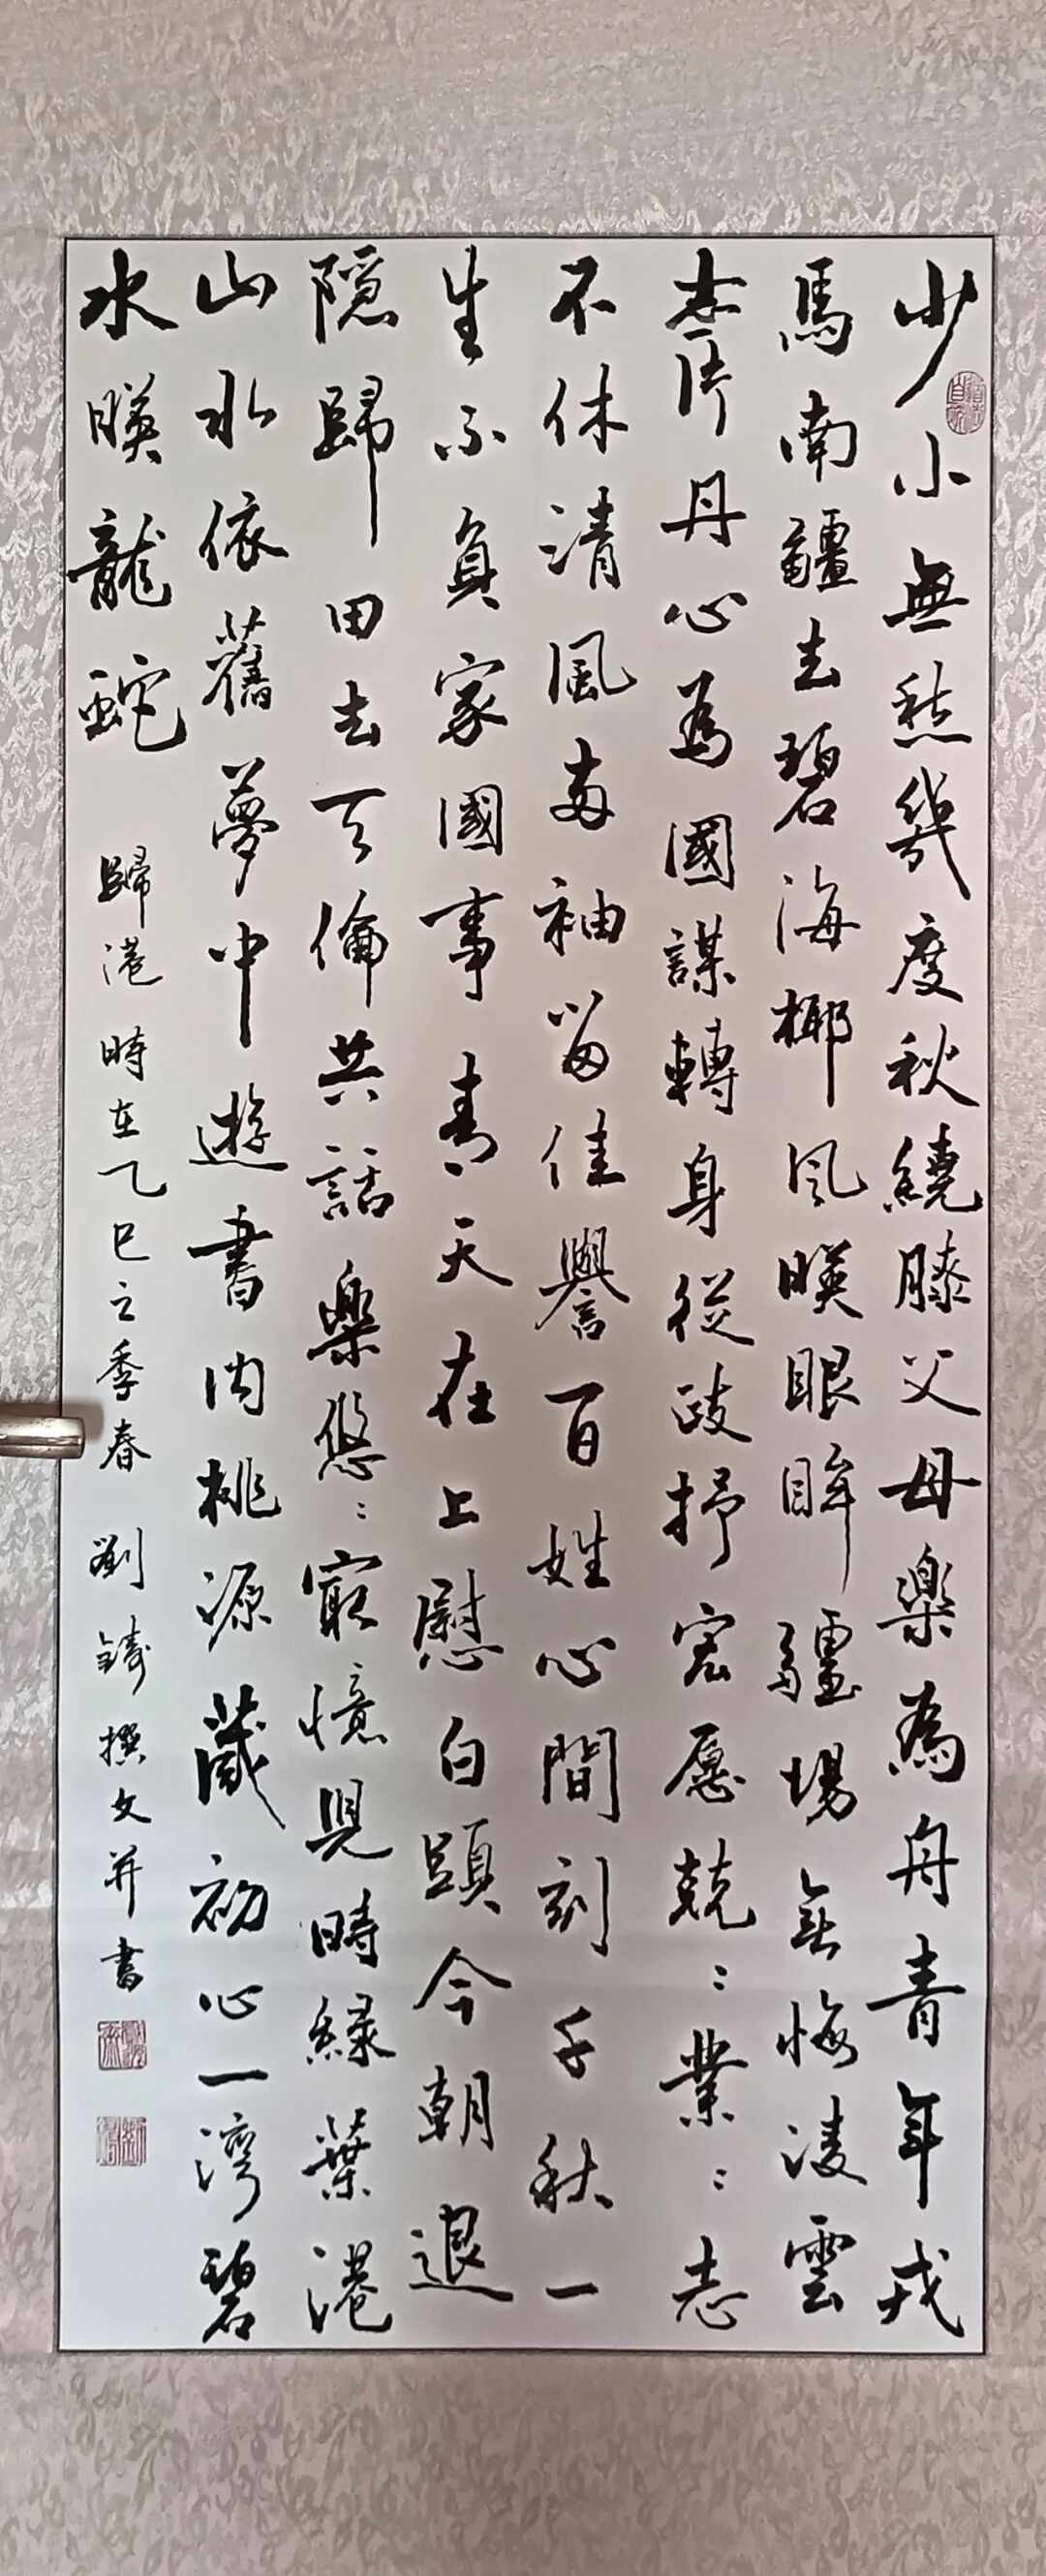 少小無愁幾度秋繞膝父母樂為舟青年戎
馬南疆去碧海椰風映眼眸疆場無悔凌雲
志片片丹心為國謀轉身從政抒宏愿兢:業:志
不休清風両袖留佳譽百姓心間刻千秋一
生不負家國事青天在上慰白頭今朝退
隱歸田去天倫共話樂悠:最憶兒時綠葉港
山水依舊夢中遊書內桃源藏初心一灣碧
水映龍蛇
歸港 時在乙巳之季春 劉鑄撰文并書